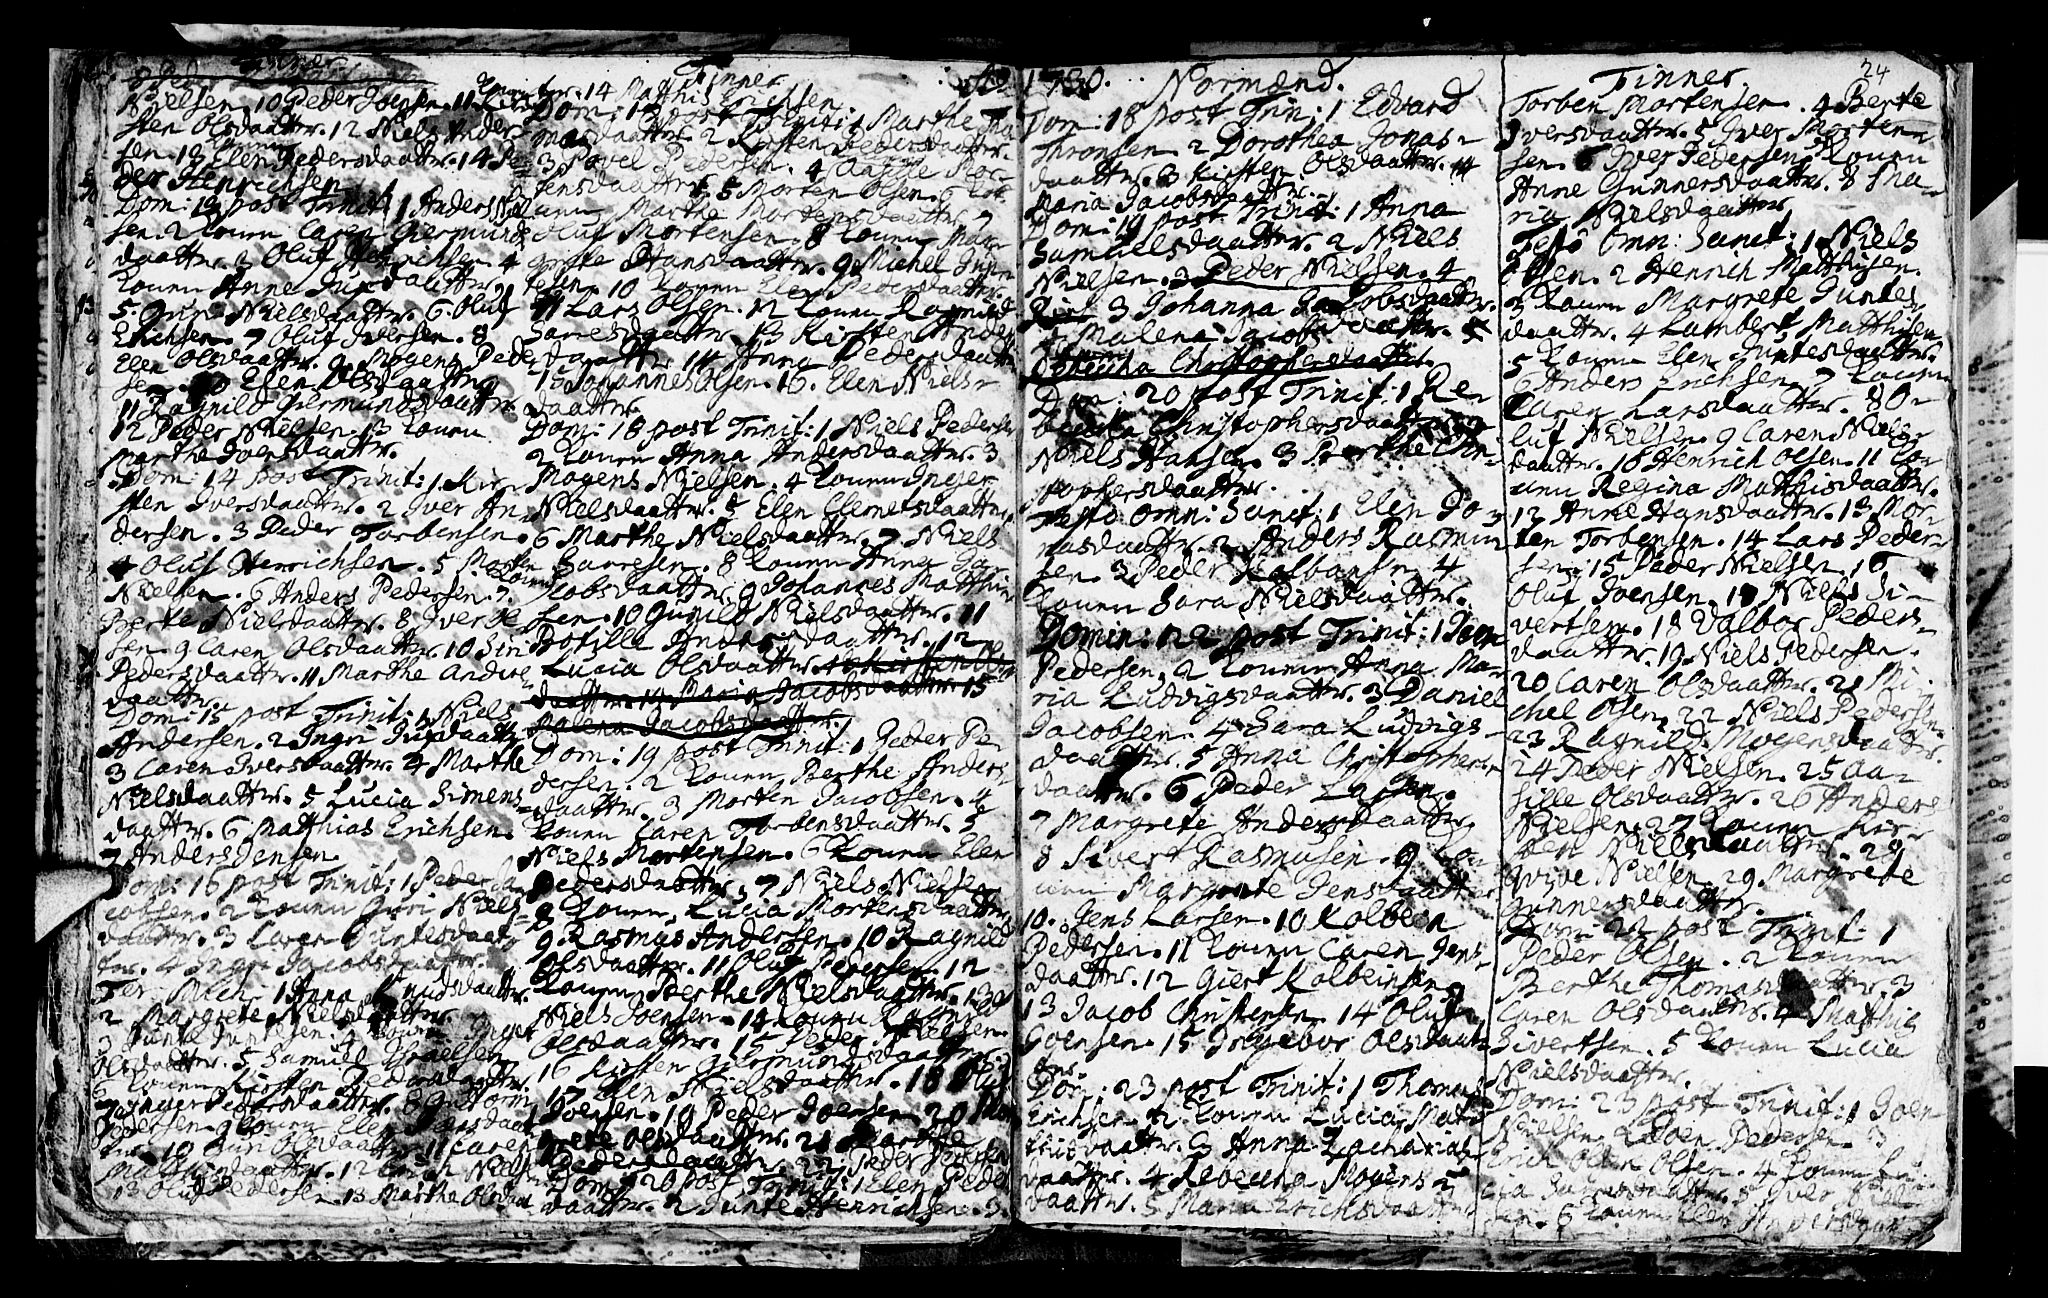 Finner
Nielsen. 10 Peder Joensen. 11 Kir
sten Olsdaatter. 12 Niels Ander
sen. 13 Elen Pedersdaatter. 14 Pe
der Henrichsen
Dom: 13 post Trinit: 1 Anders Niel
sen. 2 Konen Caren Giermunds
daatter. 3 Oluf Henrichsen. 4
Konen Anne Jux daatter
5. Ingri Nielsdaatter. 6. Oluf
Erichsen. 7 Oluf Iversen. 8
Elen Olsdaatter. 9 Mogens Peder
sen. 10 Elen Olsdaatter
11 Ragnild Giermundsdaatter.
12 Peder Nielsen. 13 Konen
Marthe Iversdaatter.
Dom: 14 post Trinit: 1. Kir
sten Iversdaatter. 2 Iver An
dersen. 3 Peder Torbensen.
4 Oluf Henrichsen. 5 Morten
Nielsen. 6 Anders Pedersen. 7. Konen
Berte Nielsdaatter. 8 Iver
sen. 9 Caren Olsdaatter. 10 Siri
Pedersdaatter. 11 Marthe Andre
daatter.
Dom: 15 post Trinit: 1 Niels
Andersen. 2 Ingri Juxdaatter
3 Caren Iversdaatter. 4 Marthe
Nielsdaatter. 5 Lucia Simens
daatter. 6 Matthias Erichsen.
7 Anders Jensen
Dom: 16 post Trinit: 1 Peder Ja
cobsen. 2 Konen Guri Niels
daatter. 3 Caren Juntesdaat
ter. 4 Ingri Jacobsdaatter.
Fer: Mich: 1 Anna Knudsdaatter.
2 Margrete Nielsdaatter
3 Junte Juntesen. 4 Konen Inger
Olsdaatter. 5 Samuel Israelsen
6 Konen Kirsten Pedersdaatter.
7 Inger Pedersdaatter. 8 Guttorm
Pedersen. 9 Konen Elen Larsdaat
ter. 10 Guri Olsdaatter. 11 Caren
Matthisdaatter. 12 Erich Nielsen
13 Oluf Pedersen 13 Marthe Olsdaat
Finner
14 Matthis Erichsen.
Dom: 17 post Trinit: 1 Marthe Tho
masdaatter. 2 Kirsten Pedersdaatter.
3 Povel Pedersen. 4 Anne Mor
tensdaatter. 5 Morten Olsen. 6 Ko
nen Marthe Mortensdaatter. 7
Oluf Mortensen. 8 Konen Mar
grete Hansdaatter. 9 Michel Jun
tesen. 10 Konen Elen Pedersdaatter.
11 Lars Olsen. 12 Konen Ragnild
Sarresdaatter. 13 Kirsten Anders
daatter. 14 Anna Pedersdaatter
15 Johannes Olsen. 16. Elen Niels
daatter.
Dom: 18 post Trinit: 1 Niels Pedersen
2 Konen Anna Andersdaatter. 3
Mogens Nielsen. 4 Konen Inger
Nielsdaatter. 5 Elen Clemetsdaatter
6 Marthe Nielsdaatter. 7 Niels
Sarresen. 8 Konen Anna Ja
cobsdaatter. 9 Johannes Matthis
sen. 10 Gunild Nielsdaatter. 11
Botille Andersdaatter. 12
Lucia Olsdaatter. 13 Kirsten Ols
daatter. 14 Maria Jacobsdaatter. 15
Malena Jacobsdaatter.
Dom: 19 post Trinit: 1 Peder Pe
dersen. 2 Konen Berthe Anders
daatter. 3 Morten Jacobsen. 4
Konen Caren Torbensdaatter. 5
Niels Mortensen. 6 Konen Elen
Pedersdaatter. 7 Niels Nielsen
8 Konen Lucia Mortensdaatter
9 Rasmus Andersen. 10 Ragnild
Olsdaatter. 11 Oluf Pedersen. 12
Konen Berthe Nielsdaatter. 13
Niels Joensen. 14 Konen Ragnild
Olsdaatter. 15 Peder Nielsen.
16 Kirsten Giermundsdaatter
17 Elen Nielsdaatter. 18 Oluf
Joensen. 19 Peder Joensen. 20 Mar
grete Olsdaatter. 21 Marthe
Pedersdaatter. 22 Peder Iversen
Dom: 20 post Trinit: 1 Elen Peders
daatter. 2 Junte Henrichsen. 3.
1730. Normænd.
Dom: 18 post Trin: 1 Edvard
Thronsen. 2 Dorothea Jonas
daatter. 3 Kirsten Olsdaatter. 4
Maria Jacobsdaatter.
Dom: 19 post Trinit: 1 Anna
Samuelsdaatter. 2 Niels
Nielsen. 3 Peder Nielsen. 4
3 Johanna Jacobsdaatter.
4 Malena Jacobsdaatter. 5
Rebeccha Christophersdaatter.
Dom: 20 post Trinit: 1 Re
beccha Christophersdaatter. 2
Niels Hansen. 3 Berthe Chri
stophersdaatter.
Festo Omn: Sanct: 1 Elen Jo
nasdaatter. 2 Anders Rasmus
sen. 3 Peder Kolbensen. 4
Konen Sara Nielsdaatter.
Domin: 22 post Trinit: 1 Joen
Pedersen. 2 Konen Anna Ma
ria Ludvigsdaatter. 3 Daniel
Jacobsen. 4 Sara Ludvigs
daatter. 5 Anna Christophers
daatter. 6 Peder Larsen.
7 Margrete Andersdaatter
8 Sivert Rasmusen. 9 Ko
nen Margrete Jensdaatter
10. Jens Larsen. 10 Kolbeen
Pedersen. 11 Konen Caren Jens
daatter. 12 Giert Kolbeinsen
13 Jacob Christensen. 14 Oluf
Joensen. 15 Ingebor Olsdaat
ter.
Dom: 23 post Trinit: 1 Thomas
Erichsen. 2. Konen Lucia Mat
thisdaatter. 3 Anna Zacharias
daatter. 4 Rebeccha Mogens
daatter. 5 Maria Erichsdaatter
24
Finner.
Torben Mortensen. 4 Berte
Iversdaatter. 5 Iver Morten
sen. 6 Iver Pedersen. 7 Konen
Anne Gunnersdaatter. 8 Ma
ria Nielsdaatter
Festo Omn: Sanct: 1 Niels
Olsen. 2 Henrich Matthisen.
3 Konen Margrete Juntes
daatter. 4 Lambert Matthisen
5 Konen Elen Juntesdaatter.
6 Anders Erichsen. 7 Konen
Caren Larsdaatter. 8 O
luf Nielsen. 9 Caren Niels
daatter. 10 Henrich Olsen. 11 Ko
nen Regina Matthisdaatter.
12 Anne Hansdaatter. 13 Mor
ten Torbensen. 14 Lars Peder
sen. 15 Peder Nielsen. 16
Oluf Joensen. 17 Niels Si
vertsen. 18 Valbor Peders
daatter. 19. Niels Pedersen.
20 Caren Olsdaatter. 21 Mi
chel Olsen. 22 Niels Pedersen.
23 Ragnild Mogensdaatter.
24 Peder Nielsen. 25 Aa
sille Olsdaatter. 26 Anders
Nielsen. 27 Konen Kir
sten Nielsdaatter. 28
Gvive Nielsen. 29 Margrete
Gunnersdaatter.
Dom: 22 post Trinit: 1
Peder Olsen. 2 Konen
Berthe Thomasdaatter. 3
Caren Olsdaatter. 4 Matthis
Sivertsen. 5 Konen Lucia
Nielsdaatter.
Dom: 23 post Trinit: 1 Joen
Nielsen. 2 Joen Pedersen. 3
Erich Olsen. 4 Konen Lu
cia Larsdaatter. 5 Iver Niel
sen. 6 Konen Elen Andersdaatt